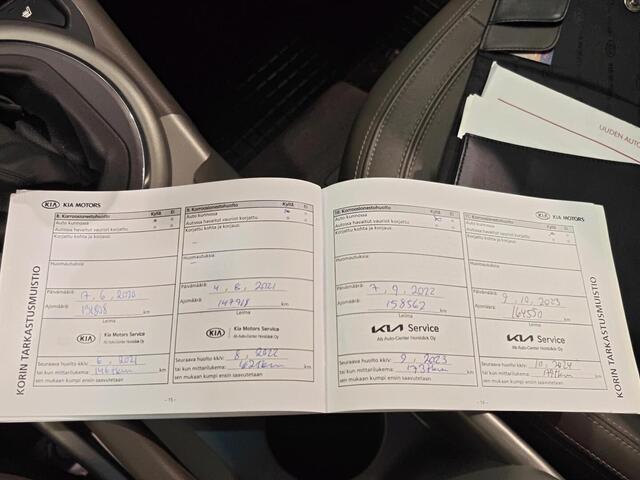 UUDEN AUTO
KIA MOTORS
KORIN TARKASTUSMUISTIO
8. Korroosionestohuolto Kyllä Ei
Auto kunnossa
Autossa havaitut vauriot korjattu
Korjattu kohta ja korjaus:
Huomautuksia:
Päivämäärä: 17, 6, 2020
Ajomäärä: km
Leima
KIA Kia Motors Service
Seuraava huolto kk/v: 6, 2021
tai kun mittarilukema: 146 tkm km
sen mukaan kumpi ensin saavutetaan
- 15 -
9. Korroosionestohuolto Kyllä Ei
Auto kunnossa
Autossa havaitut vauriot korjattu
Korjattu kohta ja korjaus:
Huomautuksia:
Päivämäärä: 4, 8, 2021
Ajomäärä: 147918 km
Leima
KIA Kia Motors Service
Ab Auto-Center Hortolidok Oy
Seuraava huolto kk/v: 8, 2022
tai kun mittarilukema: km
sen mukaan kumpi ensin saavutetaan
10. Korroosionestohuolto Kyllä Ei
Auto kunnossa
Autossa havaitut vauriot korjattu
Korjattu kohta ja korjaus:
Huomautuksia:
Päivämäärä: 7, 9, 2022
Ajomäärä: 158562 km
Leima
KIA Service
Seuraava huolto kk/v: 9, 2023
tai kun mittarilukema: 173 tkm km
sen mukaan kumpi ensin saavutetaan
- 16 -
KIA MOTORS
11. Korroosionestohuolto Kyllä Ei
Auto kunnossa
Autossa havaitut vauriot korjattu
Korjattu kohta ja korjaus:
Huomautuksia:
Päivämäärä: 9, 10, 2023
Ajomäärä: 164550 km
Leima
KIA Service
Seuraava huolto kk/v: 10, 2024
tai kun mittarilukema: 179 tkm km
sen mukaan kumpi ensin saavutetaan
KORIN TARKASTUSMUISTIO